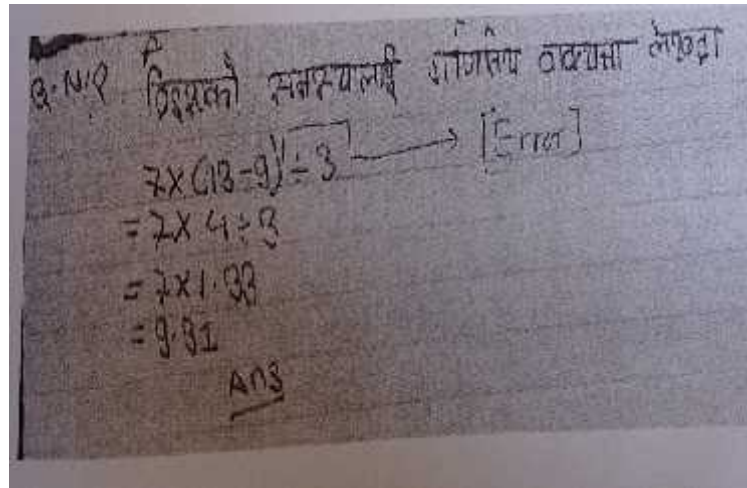 Q.N.2 दिइएको समस्यालाई गणितिय वाक्यमा लेख्दा
7×(13-9)÷3 → [Error]
=7×4÷3
=7×1.33
=9.31
Ans